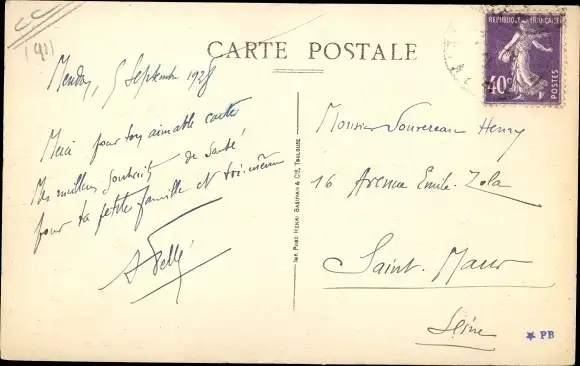 CC
1911
CARTE POSTALE
REPUBLIQUE FRANÇAISE
40c
POSTES
5 Septembre 1928
Merci pour ton aimable carte
Mes meilleurs souhaits de santé
pour ta petite famille et toi-même
Imp. Phot. Henri Basuyau & Cie, Toulouse
Monsieur Souvereau Henry
16 Avenue Emile-Zola
Saint-Maur
Seine
PB